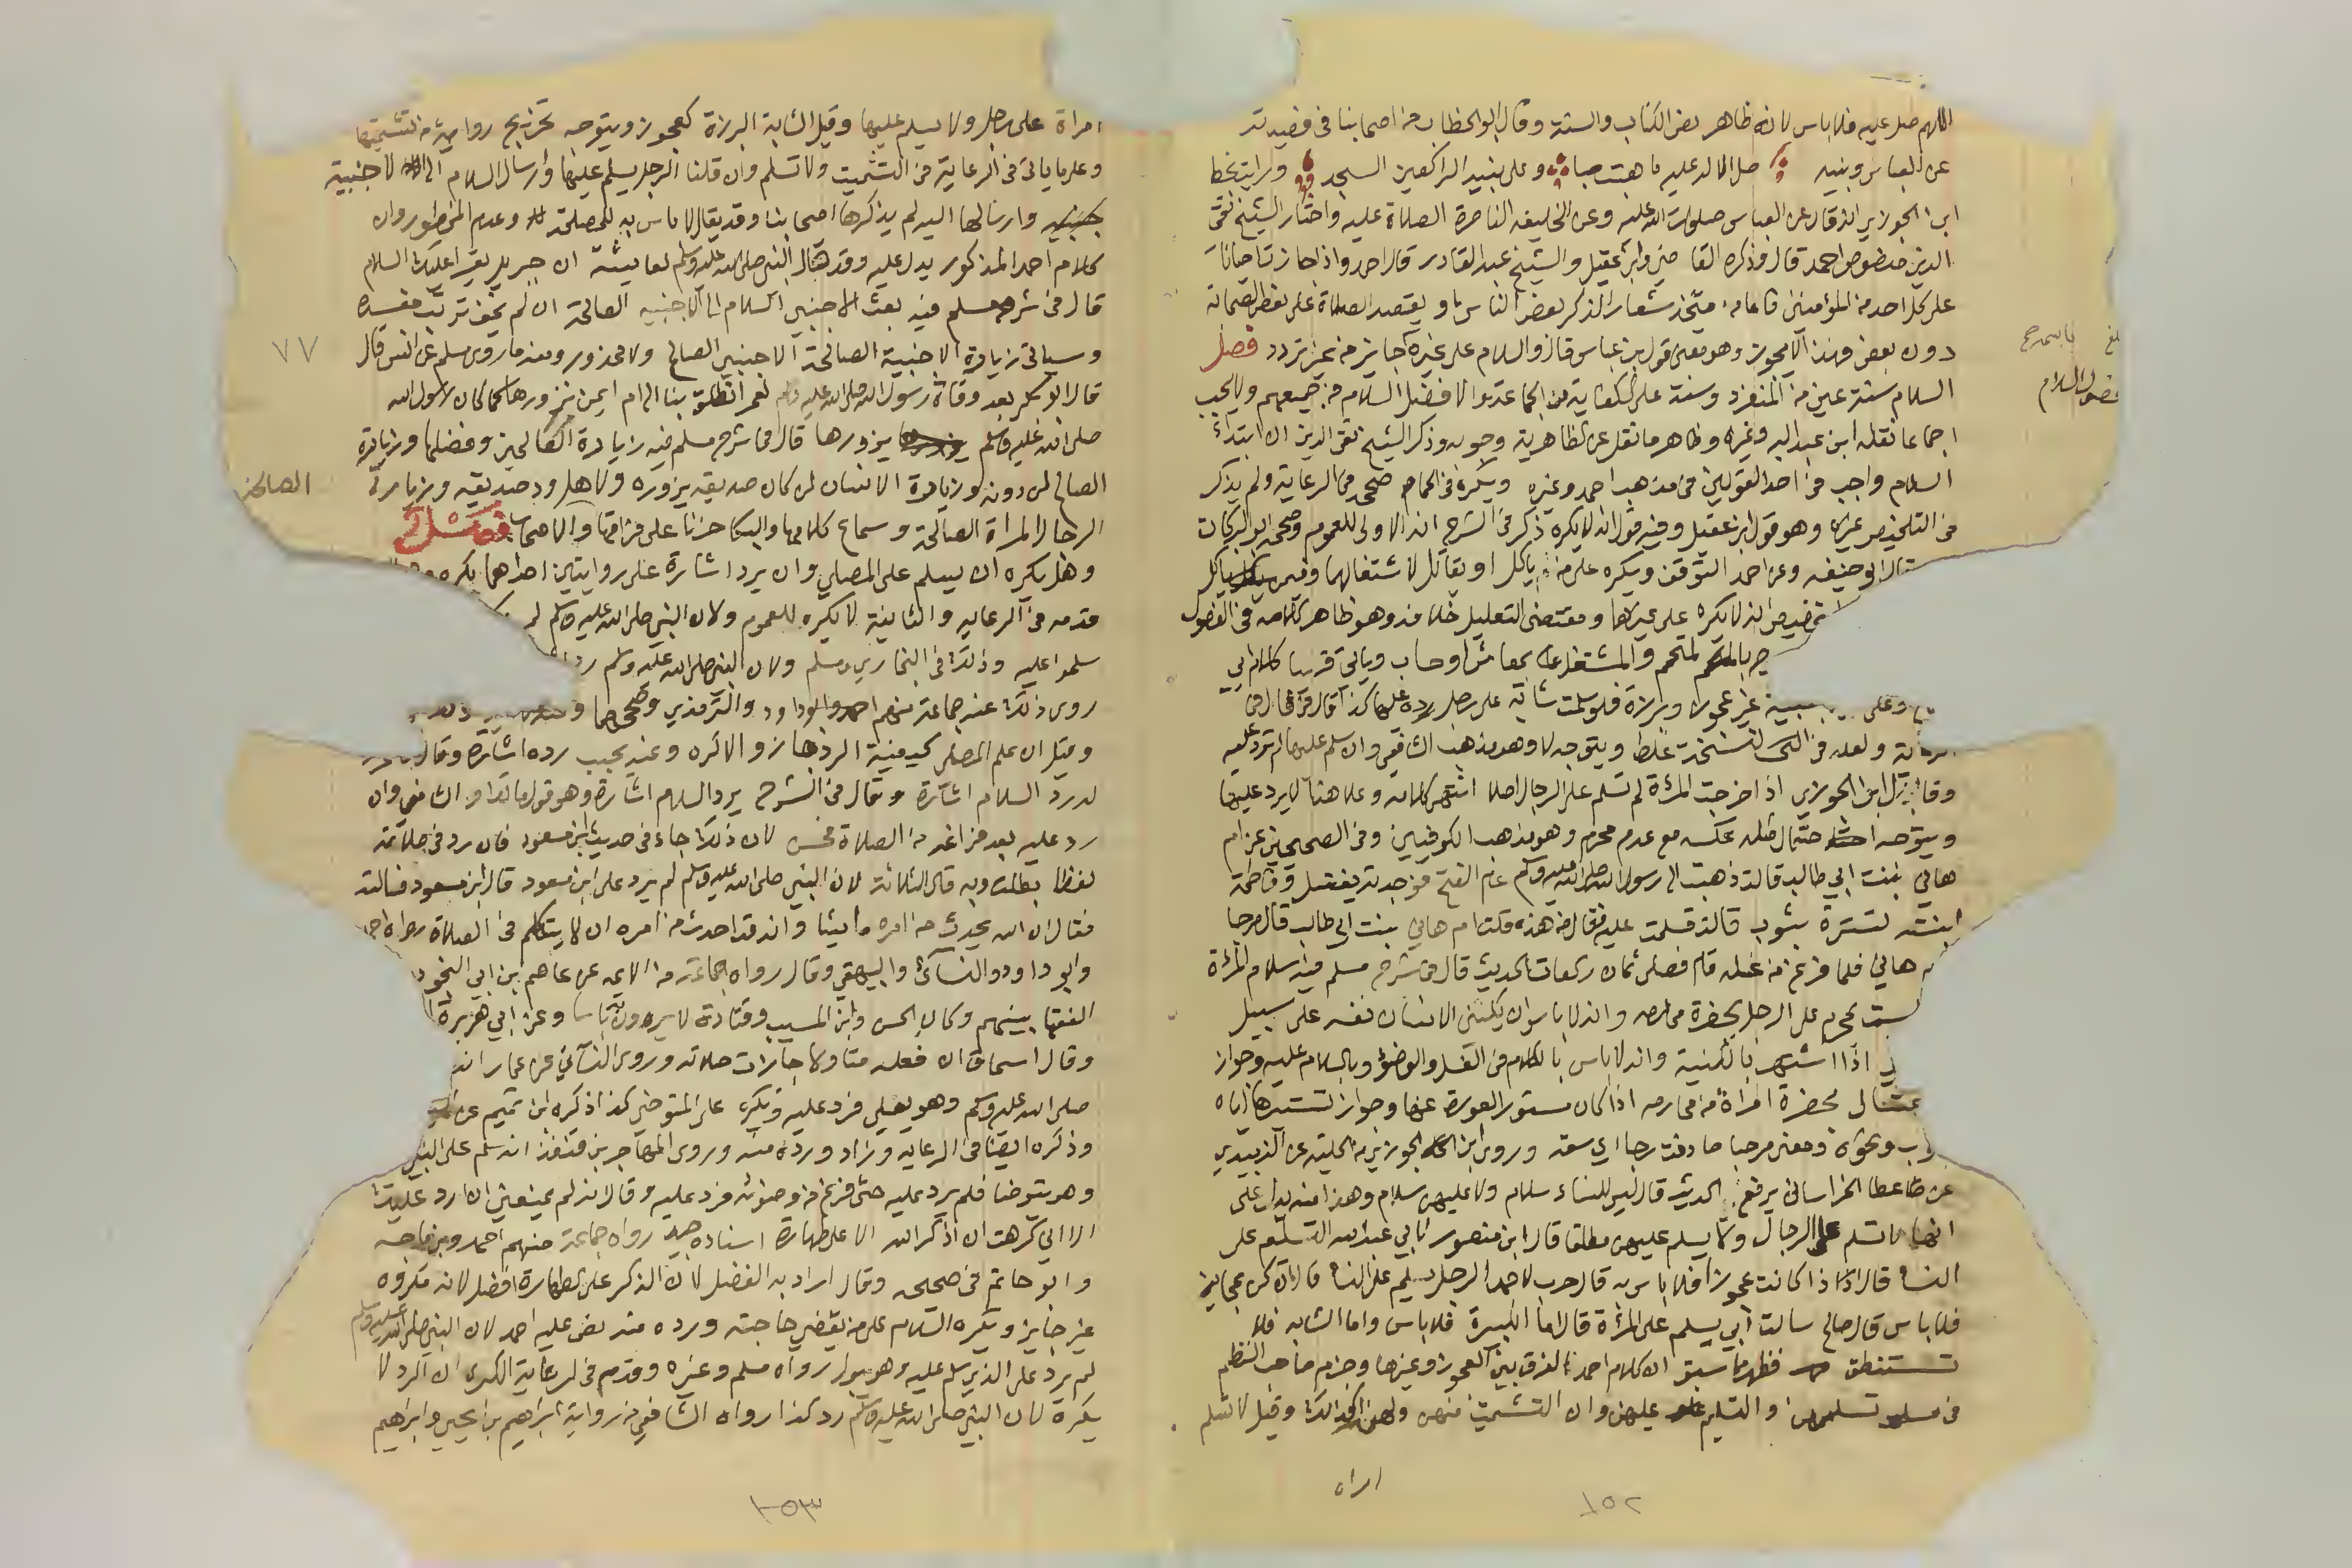 اللهم صل عليه فلا باس لانه ظاهر نص الكتاب والسنة وقال ابو الخطاب من اصحابنا في قصيدته
عن العباس وبنيه صلى الاله عليه ما هبت صبا وعلى بنيه الراكعين السجد ورايت بخط
ابن الجوزي انه قال عن العباس صلوات الله عليه وعن الخليفة الناصر الصلاة عليه واختار الشيخ تقي
الدين منصوص احمد قال وذكره القاضي وابن عقيل والشيخ عبد القادر قال احمد واذا جازت احيانا
على كل احد من المؤمنين فاما ان يتخذ شعارا لذكر بعض الناس او يقصد الصلاة على بعض الصحابة
دون بعض فهذا لا يجوز وهو معنى قول ابن عباس قال والسلام على غيره جايز من غير تردد فصل
السلام سنة عين من المنفرد وسنة على الكفاية من الجماعة والافضل السلام من جميعهم ولا يجب
اجماعا نقله ابن عبد البر وغيره وظاهر ما نقل عن الظاهرية وجوبه وذكر الشيخ تقي الدين ان ابتداء
السلام واجب في احد القولين في مذهب احمد وغيره ويكره في الحمام صححه في الرعاية ولم يذكر
في التلخيص غيره وهو قول ابن عقيل وفيه قول انه لا يكره ذكر في الشرح انه الاولى للعموم وصححه ابو البركات
ابو حنيفه وعن احمد التوقف ويكره على من ياكل او يقاتل لاشتغالهما وفيمن ياكل
انه لا يكره على غيرها ومقتضى التعليل خلافه وهو ظاهر كلامه في الفصول
والمشتغل بمعاش او حساب وياتي قريبا كلام ابي
وعلى غير عجوز وبرزة فلو سلمت شابة على رجل رده عليها كذا قال
ولعله في النسخة غلط ويتوجه لا وهو مذهب الشافعي وان سلم عليها لم ترد عليه
وقال ابن الجوزي اذا خرجت المراة لم تسلم على الرجال اصلا انتهى كلامه وعلى هذا لا يرد عليها
ويتوجه احتمال مثله عكسه مع عدم محرم وهو مذهب الكوفيين وفي الصحيحين عن ام
هاني بنت ابي طالب قالت ذهبت الى رسول الله صلى الله عليه وسلم عام الفتح فوجدته يغتسل وفاطمة
ابنته تستره بثوب قالت فسلمت عليه فقال من هذه قلت ام هاني بنت ابي طالب قال مرحبا
هاني فلما فرغ من غسله قام فصلى ثمان ركعات الحديث قال في شرح مسلم فيه سلام المراة
بمحرم على الرجل بحضرة محارمه وانه لا باس ان يكني الانسان نفسه على سبيل
اذا اشتهر بالكنية وانه لا باس بالكلام في الغسل والوضوء وبالسلام عليه وجواز
بحضرة امراة من محارمه اذا كان مستور العورة عنها وجواز تستيرها اياه
ونحوه ومعنى مرحبا صادفت رحبا اي سعة وروى ابن الجوزي من الحلية عن الزبيدي
عن عطا الخراساني يرفع الحديث قال ليس للنساء سلام ولا عليهن سلام وهذا منه يدل على
انها لا تسلم على الرجال ولا يسلم عليهن مطلقا قال ابن منصور لابي عبد الله التسليم على
النساء قال اذا كانت عجوزا فلا باس به قال حرب لاحمد الرجل يسلم على النساء قال ان كن عجايز
فلا باس قال صالح سالت ابي يسلم على المراة قال اما الكبيرة فلا باس واما الشابه فلا
تستنطق فظهر مما سبق ان كلام احمد الفرق بين العجوز وغيرها وجزم صاحب النظم
في تسليمهن والتسليم عليهن وان التشميت منهن ولهن كذلك وقيل لا تسلم
امراه
١٥٢
فصول السلام
امراة على رجل ولا يسلم عليها وقيل الشابة البرزة كعجوز ويتوجه تخريج رواية من تشميتها
وعلى ما ياتي في الرعاية في التشميت ولا تسلم وان قلنا الرجل يسلم عليها وارسال السلام الى الاجنبية
وارسالها اليه لم يذكرها اصحابنا وقد يقال لا باس به للمصلحة وعدم المحظور وان
كلام احمد المذكور يدل عليه وقد قال النبي صلى الله عليه وسلم لعايشة ان جبريل يقرا عليك السلام
قال في شرح مسلم فيه بعث الاجنبي السلام الى الاجنبيه الصالحة ان لم يخف ترتب مفسدة
وسياتي زيادة الاجنبية الصالحة الاجنبي الصالح ولا محذور ومنه ما روى مسلم عن انس قال
قال ابو بكر بعد وفاة رسول الله صلى الله عليه وسلم لعمر انطلق بنا الى ام ايمن نزورها كما كان رسول الله
صلى الله عليه وسلم يزورها قال في شرح مسلم فيه زيارة الصالحين وفضلها وزيارة
الصالح لمن دونه وزيارة الانسان لمن كان صديقه يزوره ولاهل ود صديقه وزيارة
الرجال المراة الصالحة وسماع كلامها والبكا حزنا على فراق الصالحين والاصحاب فصل
وهل يكره ان يسلم على المصلي وان يرد اشارة على روايتين احداهما يكره
قدمه في الرعايه والثانية لا يكره للعموم ولان النبي صلى الله عليه وسلم لم
سلموا عليه وذلك في البخاري ومسلم ولان النبي صلى الله عليه وسلم رد
روى ذلك عنه جماعة منهم احمد وابو داود والترمذي وصححهما
وقيل ان علم المصلي كيفية الرد جاز والا كره وعنه يجب رده اشارة وقال
لا يرد السلام اشارة وقال في الشرح يرد السلام اشارة وهو قول مالك والشافعي وان
رد عليه بعد فراغه من الصلاة فحسن لان ذلك جاء في حديث ابن مسعود فان رد في صلاته
لفظا بطلت وبه قال الثلاثة لان النبي صلى الله عليه وسلم لم يرد على ابن مسعود قال ابن مسعود فسالته
فقال ان الله يحدث من امره ما يشا وانه قد احدث من امره ان لا يتكلم في الصلاة رواه احمد
وابو داود والنسائي والبيهقي وقال رواه جماعة من الايمة عن عاصم بن ابي النجود
الفقها بينهم وكان الحسن وابن المسيب وقتادة لا يرون به باسا وعن ابي هريرة
وقال اسحاق ان فعله متاولا جازت صلاته وروى النسائي عن عمار انه
صلى الله عليه وسلم وهو يصلي فرد عليه ويكره على المتوضي كذا ذكره ابن تميم عن
وذكره ايضا في الرعايه وزاد ورده منه وروى المهاجر بن قنفذ انه سلم على النبي
وهو يتوضا فلم يرد عليه حتى فرغ من وضوئه فرد عليه وقال انه لم يمنعني ان ارد عليك
الا اني كرهت ان اذكر الله الا على طهارة اسناده جيد رواه جماعة منهم احمد وابن ماجه
وابو حاتم في صحيحه وقال اراد به الفضل لان الذكر على الطهارة افضل لانه مكروه
غير جايز ويكره السلام على من يقضي حاجته ورده منه نص عليه احمد لان النبي صلى الله عليه وسلم
لم يرد على الذي سلم عليه وهو يبول رواه مسلم وغيره وقدم في الرعاية الكبرى ان الرد لا
يكره لان النبي صلى الله عليه وسلم رد كذا رواه الشافعي من رواية ابراهيم بن ابي يحيى وابراهيم
٧٧
الصالحين
١٥٣